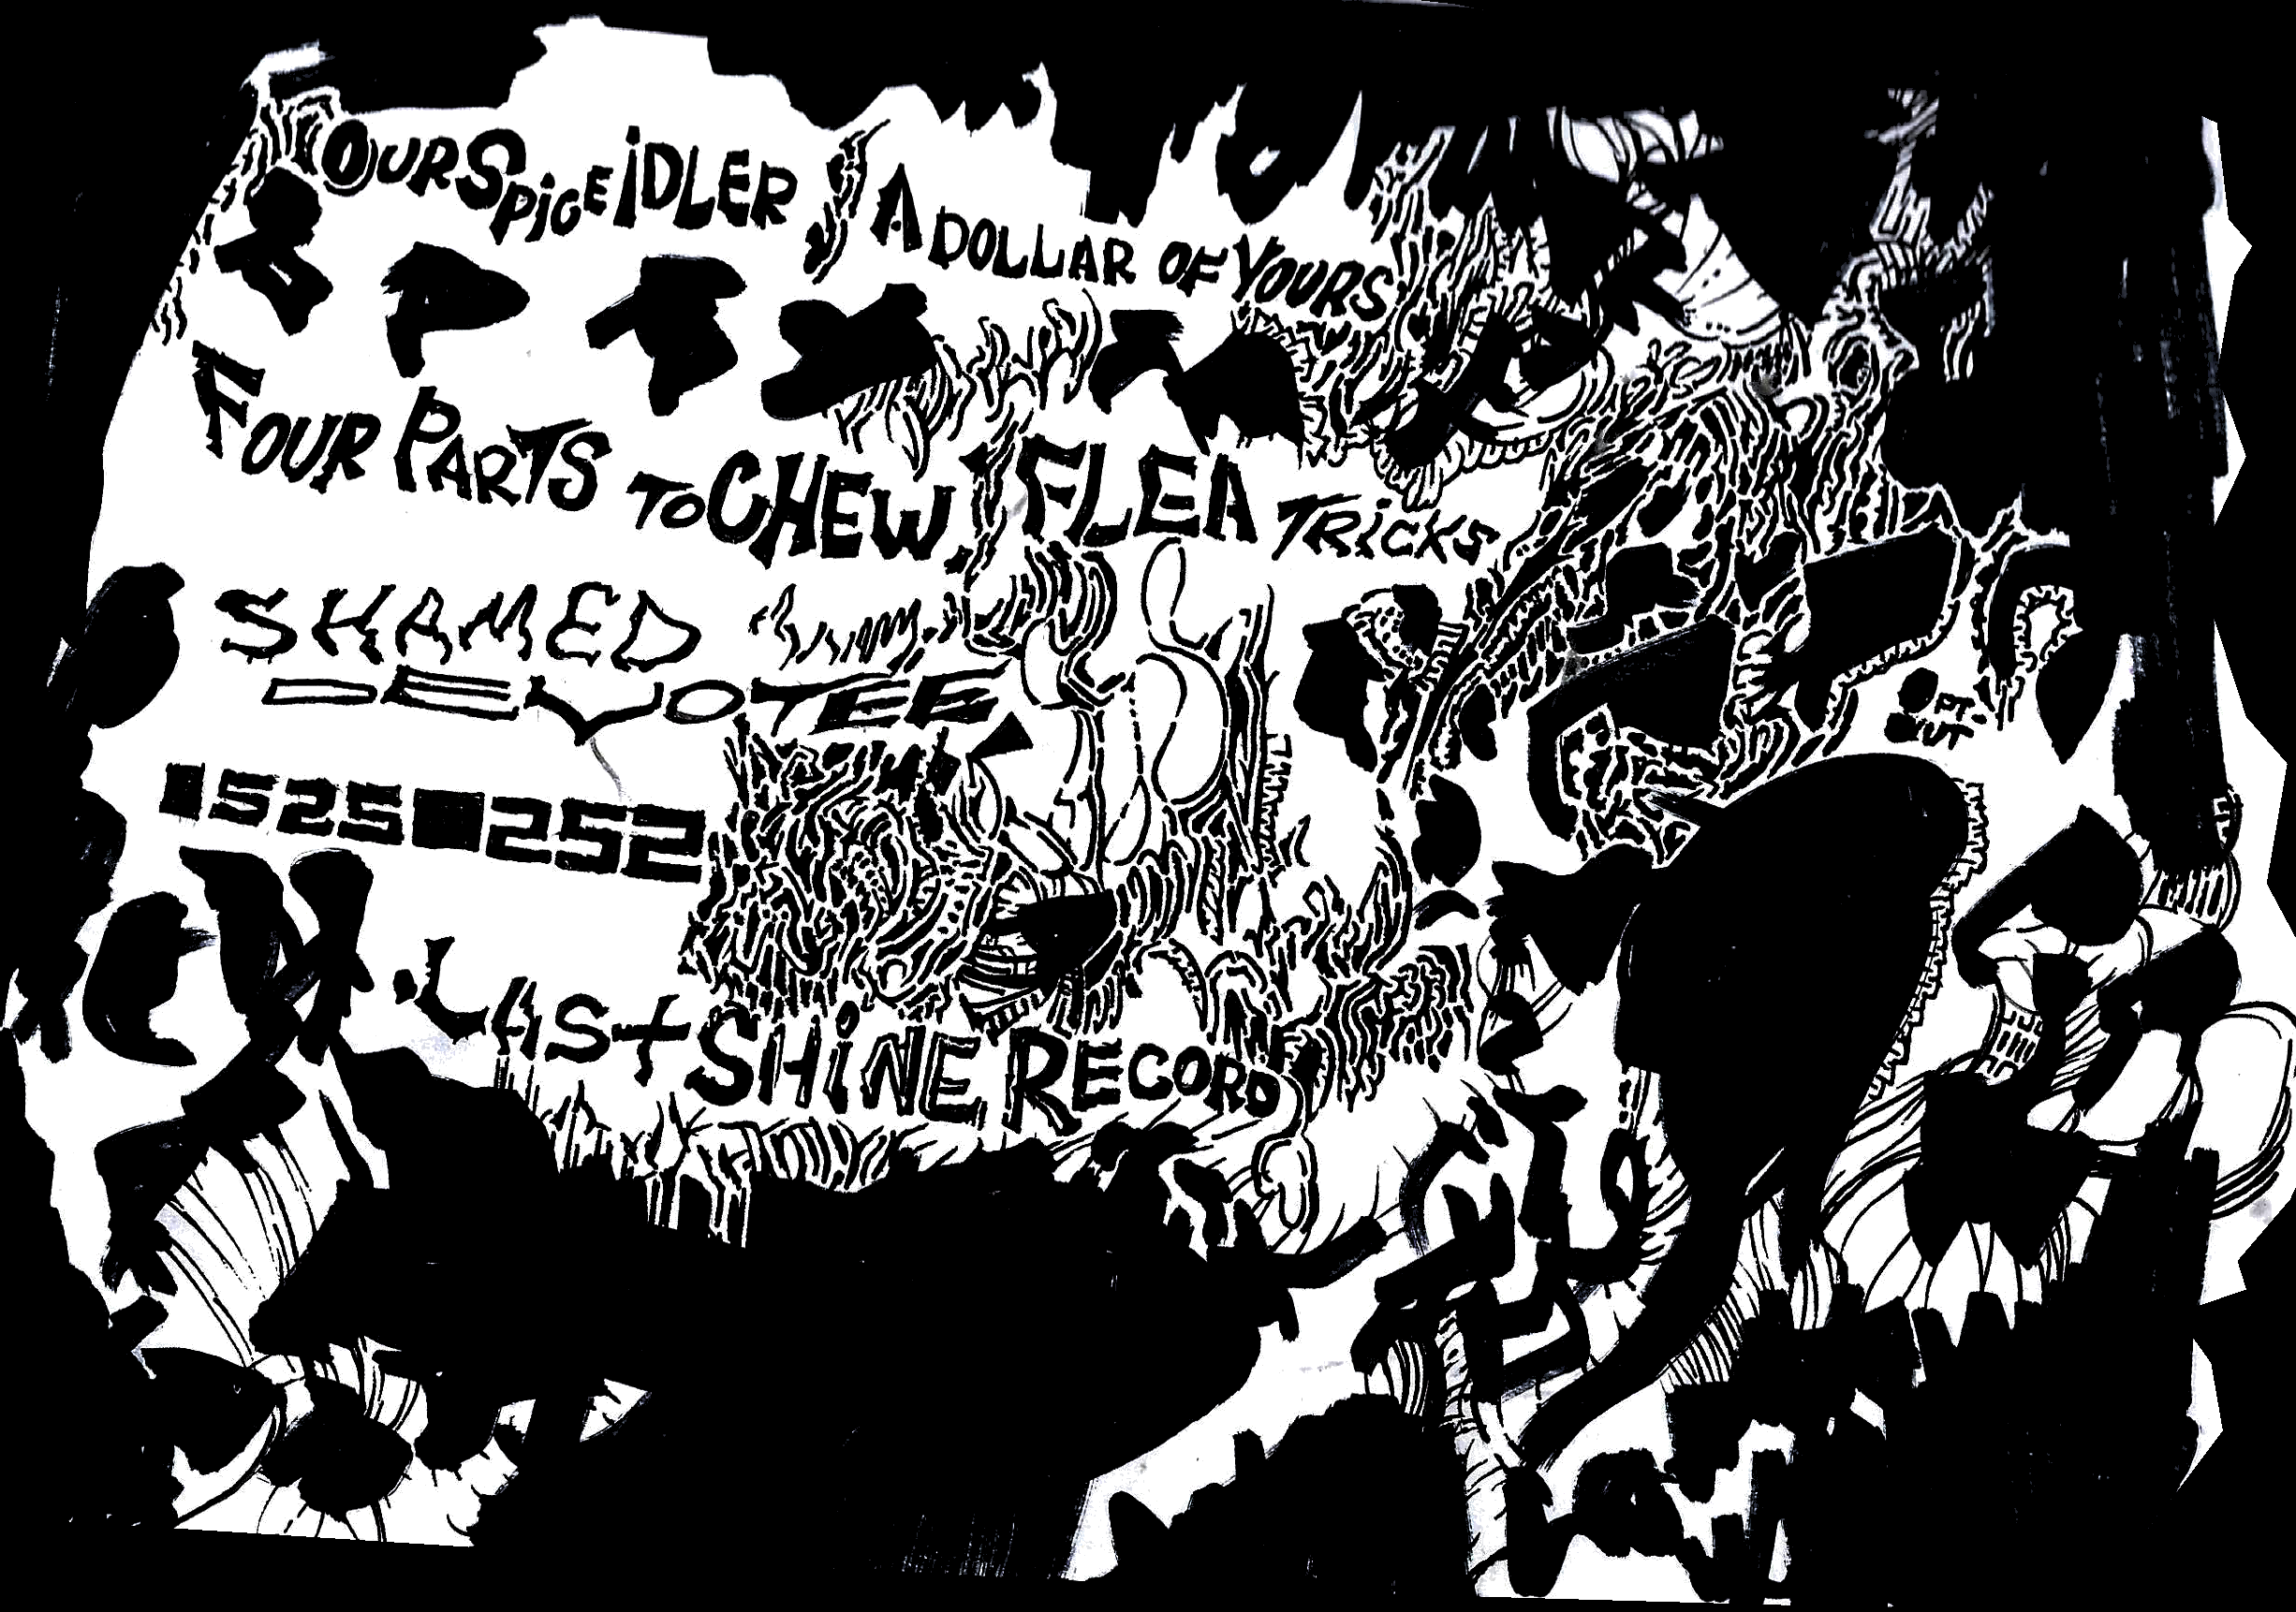 OUR SPICE IDLER A DOLLAR OF YOURS
FOUR PARTS TO CHEW. FLEA TRICKS
SHAMED
DEVOTEE
1525 252
LAST SHINE RECORD